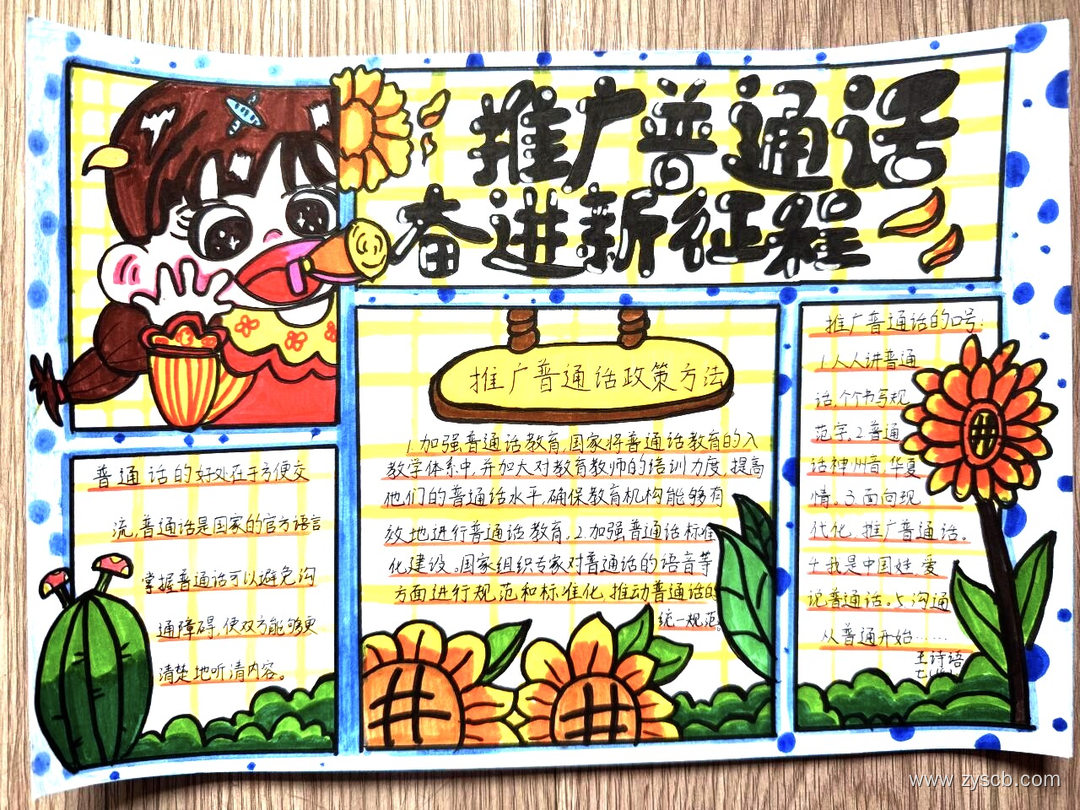 推广普通话
奋进新征程
普通话的好处在于方便交
流,普通话是国家的官方语言
掌握普通话可以避免沟
通障碍,使双方能够更
清楚地听清内容。
推广普通话政策方法
1.加强普通话教育,国家将普通话教育的入
教学体系中,并加大对教育教师的培训力度,提高
他们的普通话水平,确保教育机构能够有
效地进行普通话教育。2.加强普通话标准
化建设。国家组织专家对普通话的语音等
方面进行规范和标准化,推动普通话的
统一规范。
推广普通话的口号:
1.人人讲普通
话,个个书写规
范字。2.普通
话神州音,华夏
情。3.面向现
代化,推广普通话。
4.我是中国娃,爱
说普通话。5.沟通
从普通开始……
王诗语
www.zyscb.com